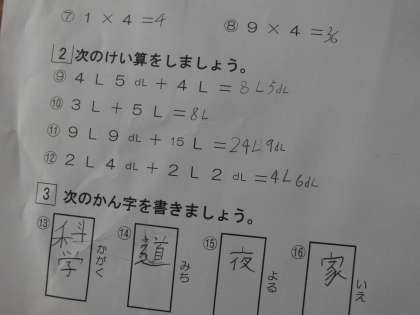 ⑦ 1 × 4 =4
⑧ 9 × 4 =36
2 次のけい算をしましょう。
⑨ 4 L 5 dL + 4 L = 8L5dL
⑩ 3 L + 5 L =8L
⑪ 9 L 9 dL + 15 L =24L9dL
⑫ 2 L 4 dL + 2 L 2 dL =4L6dL
3 次のかん字を書きましょう。
⑬ 科学 かがく
⑭ 道 みち
⑮ 夜 よる
⑯ 家 いえ